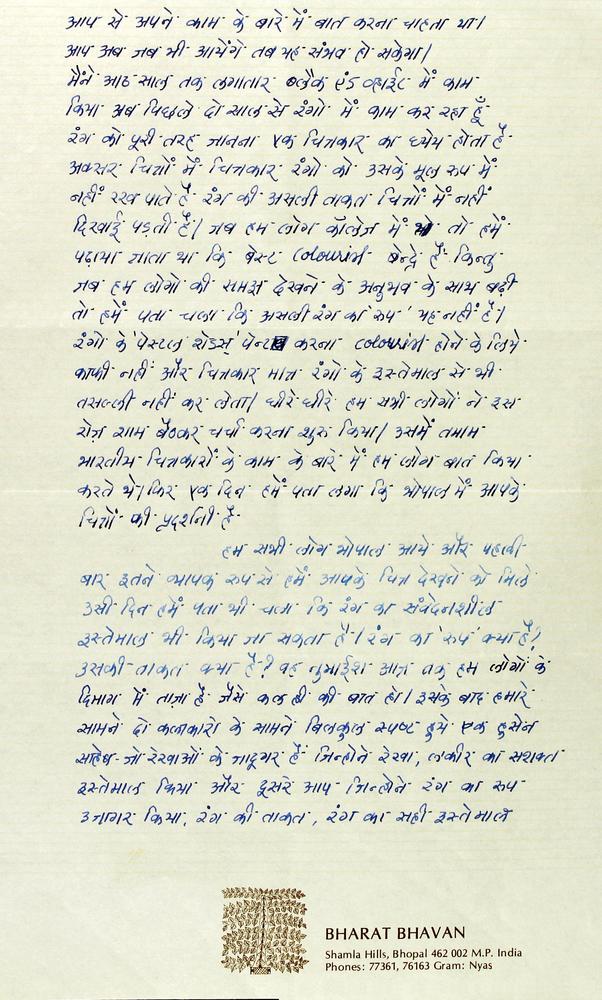 आप से अपने काम के बारे में बात करना चाहता था।
आप अब जब भी आयेंगे तब यह संभव हो सकेगा।
मैंने आठ साल तक लगातार ब्लैक एंड व्हाईट में काम
किया अब पिछले दो साल से रंगो में काम कर रहा हूँ
रंग को पूरी तरह जानना एक चित्रकार का ध्येय होता है
अक्सर चित्रों में चित्रकार रंगो को उसके मूल रूप में
नहीं रख पाते है रंग की असली ताकत चित्रों में नहीं
दिखाई पड़ती है। जब हम लोग कॉलेज में थे तो हमें
पढ़ाया जाता था कि बेस्ट colourist बेन्द्रे है किन्तु
जब हम लोगो की समझ देखने के अनुभव के साथ बढ़ी
तो हमें पता चला कि असली रंग का रूप 'यह नहीं है।
रंगो के 'पेस्टल शेडस्' पेन्ट करना colourist होने के लिये
काफी नहीं और चित्रकार मात्र रंगो के इस्तेमाल से भी
तसल्ली नहीं कर लेता। धीरे धीरे हम सभी लोगों ने इस
रोज़ शाम बैठकर चर्चा करना शुरू किया। उसमें तमाम
भारतीय चित्रकारों के काम के बारे में हम लोग बात किया
करते थे। फिर एक दिन हमें पता लगा कि भोपाल में आपके
चित्रों की प्रदर्शनी है
हम सभी लोग भोपाल आये और पहली
बार इतने व्यापक रूप से हमें आपके चित्र देखने को मिले
उसी दिन हमें पता भी चला कि रंग का संवेदनशील
इस्तेमाल भी किया जा सकता है। रंग का 'रूप' क्या है?
उसकी ताकत क्या है? वह नुमाईश आज तक हम लोगों के
दिमाग में ताज़ा है जैसे कल ही की बात हो। इसके बाद हमारे
सामने दो कलाकारो के सामने बिलकुल स्पष्ट हुये एक हुसेन
साहेब जो रेखाओं के जादूगर है जिन्होने रेखा, लकीर का सशक्त
इस्तेमाल किया और दूसरे आप जिन्होने रंग का रूप
उजागर किया, रंग की ताकत, रंग का सही इस्तेमाल
BHARAT BHAVAN
Shamla Hills, Bhopal 462 002 M.P. India
Phones: 77361, 76163 Gram: Nyas